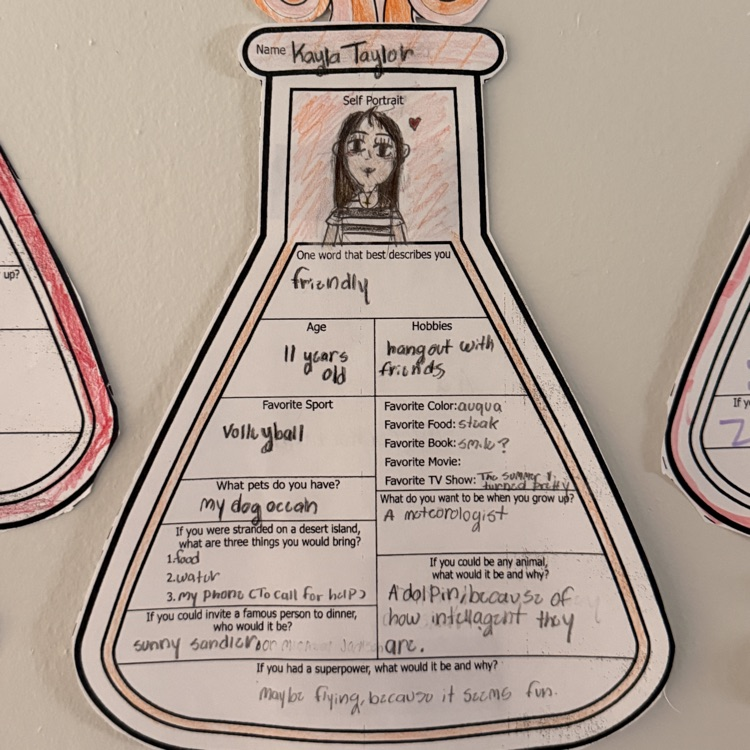 Name Kayla Taylor
Self Portrait
One word that best describes you
friendly
Age
11 years
old
Hobbies
hangout with
friends,
Favorite Sport
Volleyball
Favorite Color: auqua
Favorite Food: steak
Favorite Book: smile?
Favorite Movie:
Favorite TV Show: The summer I
turned pretty
What pets do you have?
My dog occain
What do you want to be when you grow up?
A meteorologist
If you were stranded on a desert island,
what are three things you would bring?
1. food
2. water
3. my phone (To call for help)
If you could be any animal,
what would it be and why?
A dolpin, because of
how intellagent they
are.
If you could invite a famous person to dinner,
who would it be?
sunny sandler
If you had a superpower, what would it be and why?
maybe flying, because it seems fun.
up?
If yo